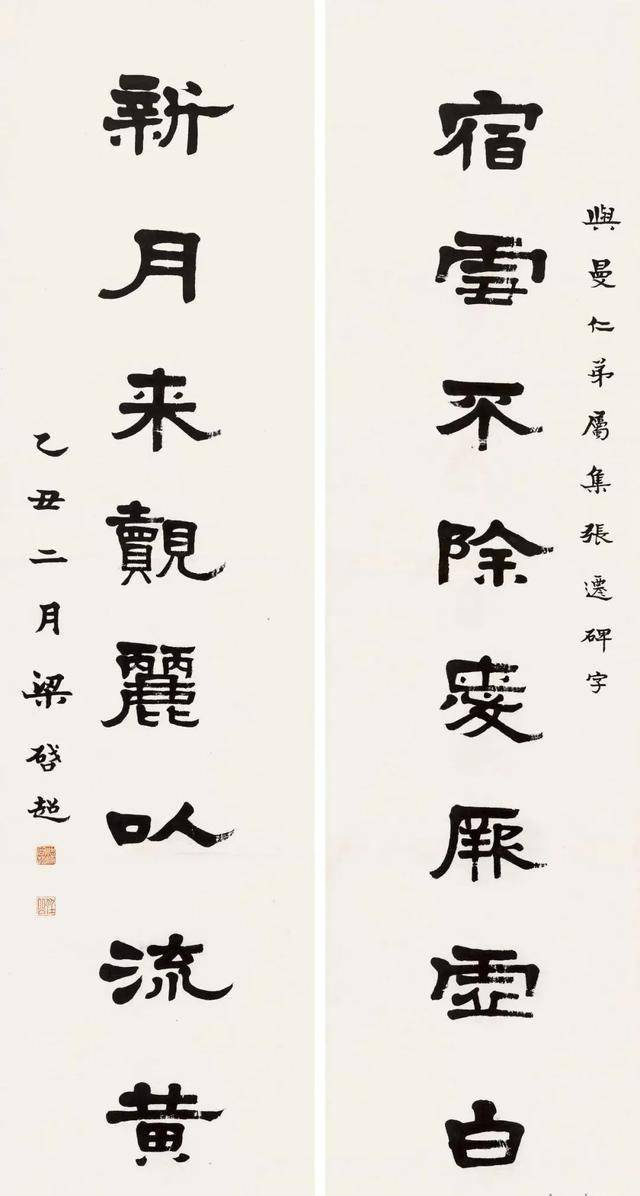 與曼仁弟屬集張遷碑字
宿雲不除愛厥虛白
新月来覿麗以流黄
乙丑二月梁啓超